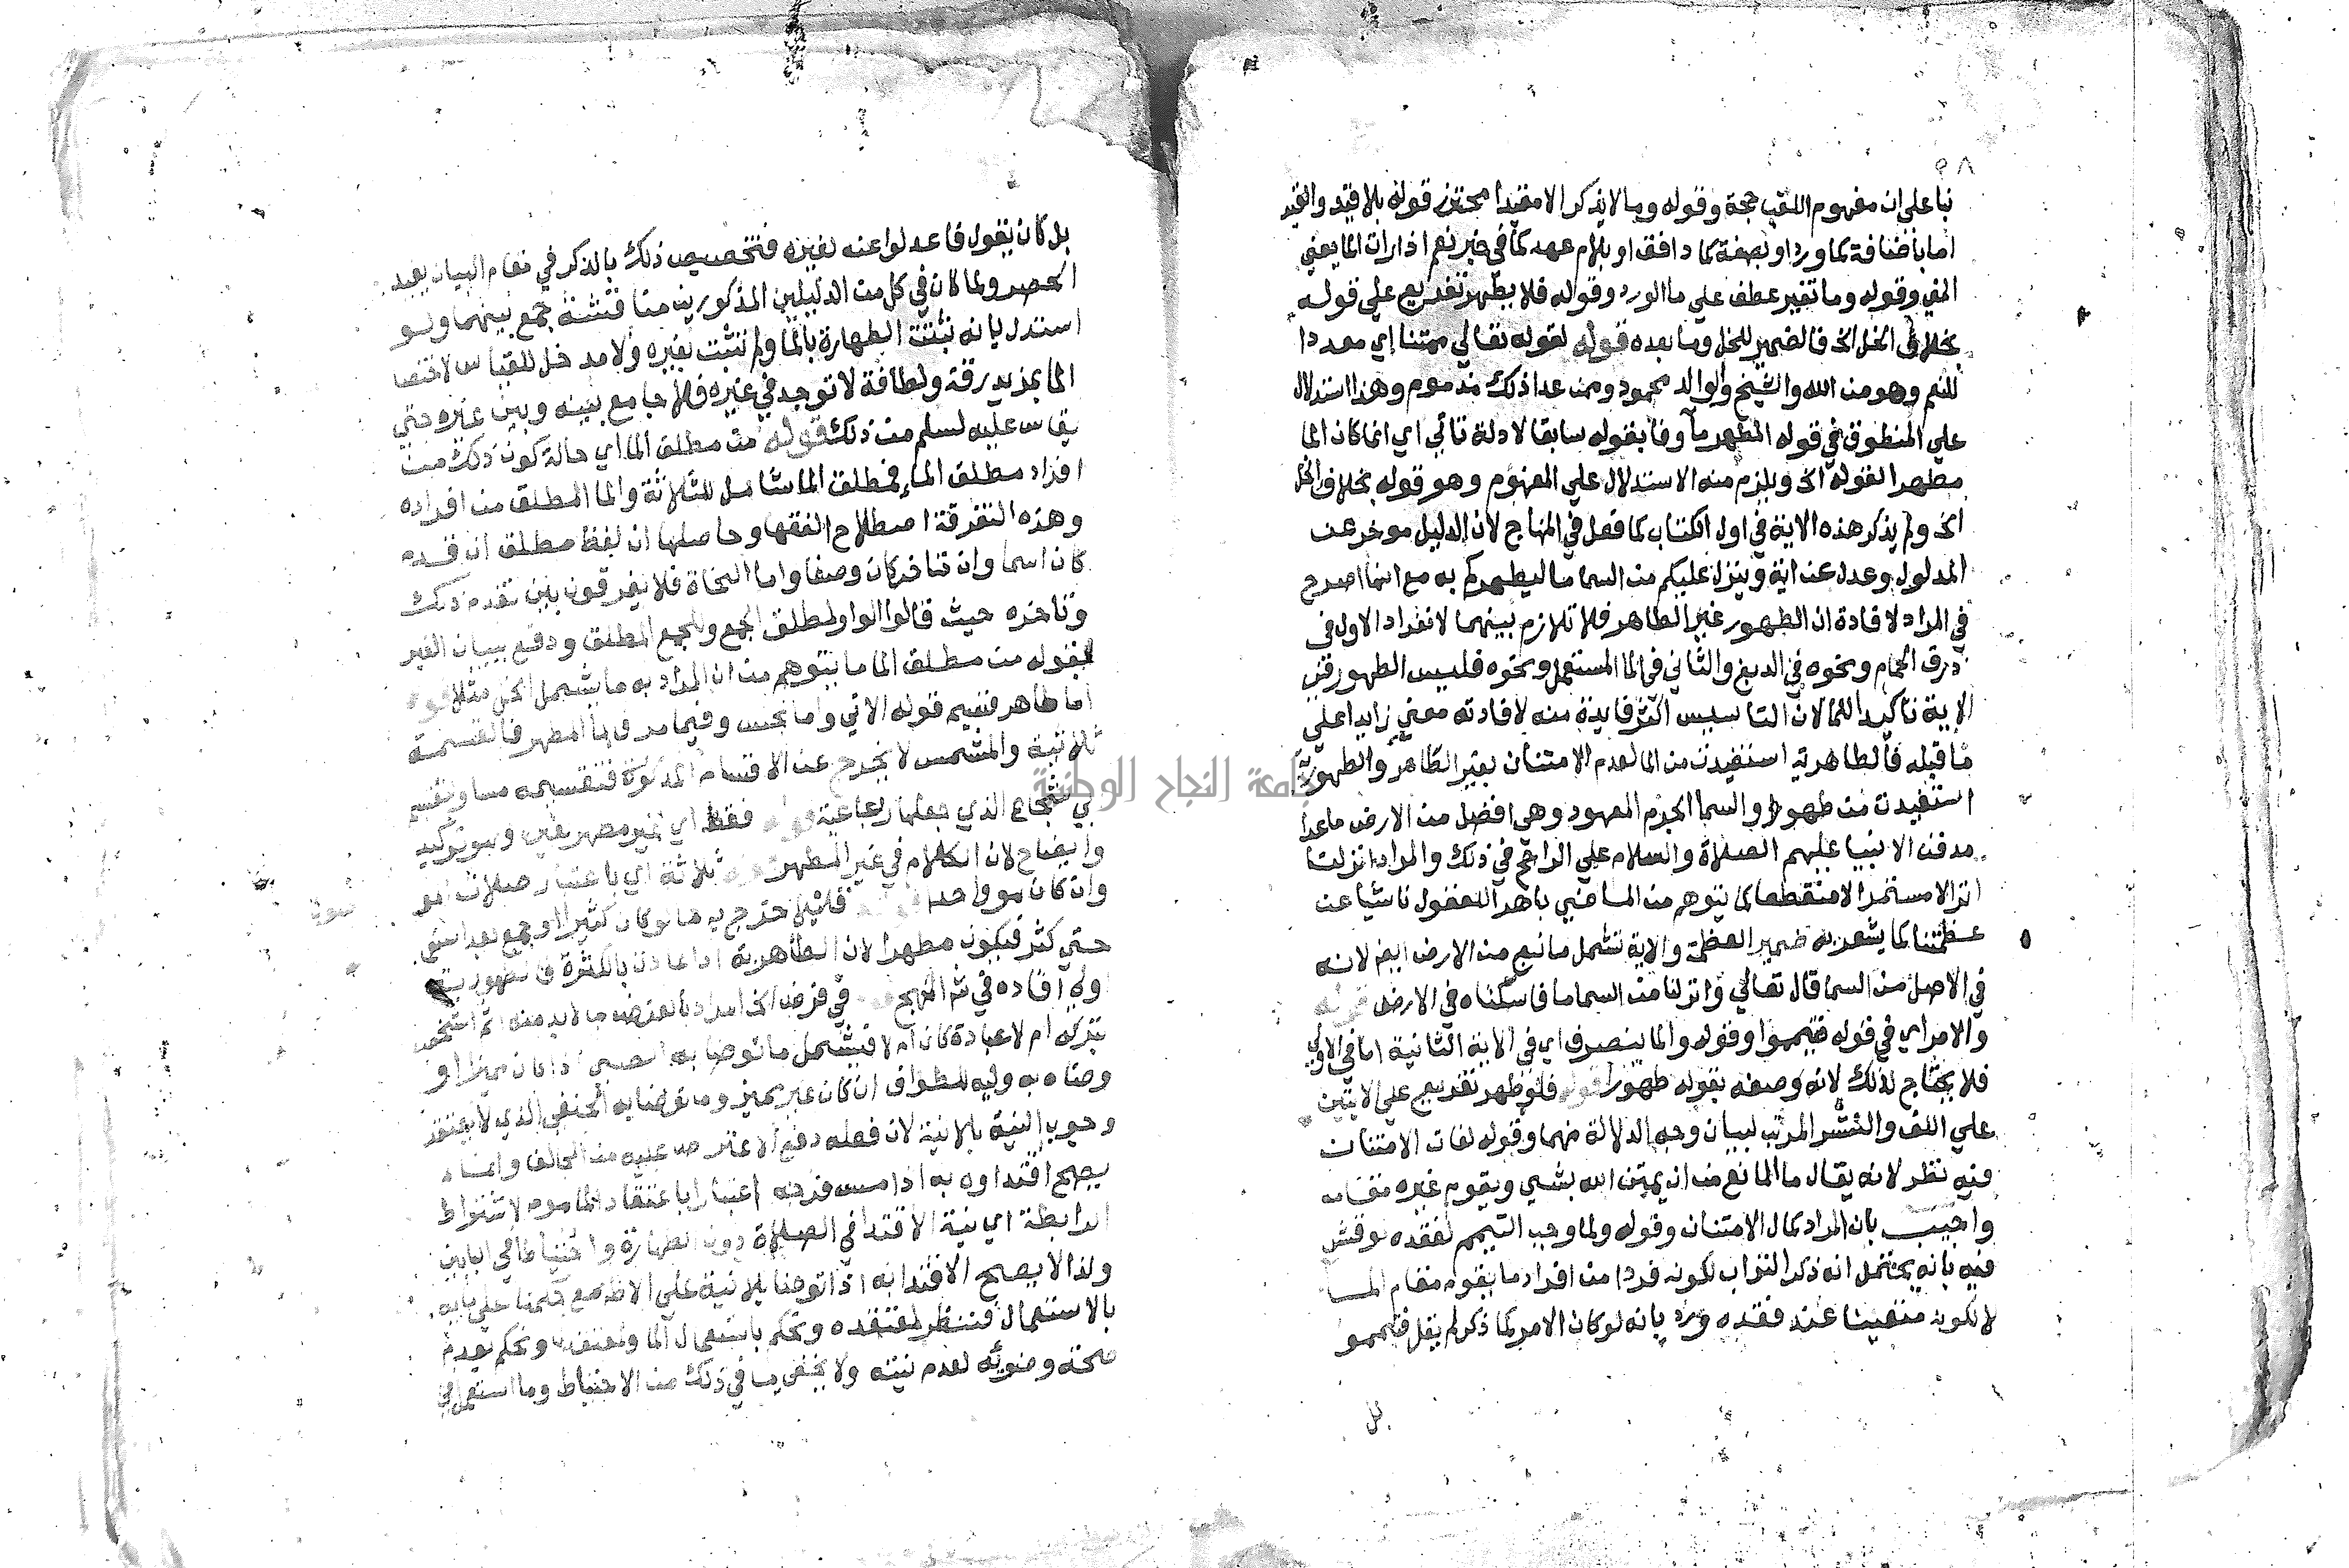 ٥٨
بنا على ان مفهوم اللقب حجة وقوله وما لا يذكر الا مقيدا محترز قوله بلا قيد والقيد
اما باضافة كما ورد او بصفة كما دافق او بلام عهد كما في خبر نعم اذا رات الما يعني
المني وقوله وما تغير عطف علي ما الورد وقوله فلا يطهر تفريع علي قوله
بخلاف الخل الخ فالضمير للخل وما بعده قوله لقوله تعالي ممتنا اي معددا
للنعم وهو من الله والشيخ والوالد محمود وممن عدا ذلك مذموم وهذا استدلال
علي المنطوق في قوله المطهر ما وفا بقوله سابقا لادلة تاتي اي انما كان الما
مطهرا لقوله الخ ويلزم منه الاستدلال علي المفهوم وهو قوله بخلاف الخل
الخ ولم يذكر هذه الاية في اول الكتاب كما فعل في المنهاج لان الدليل موخر عن
المدلول وعدل عن اية وينزل عليكم من السما ما ليطهركم به مع انها اصرح
في المراد لافادة ان الطهور غير الطاهر فلا تلازم بينهما لانفراد الاول في
ذرق الحمام ونحوه في الدبغ والثاني في الما المستعمل ونحوه فليس الطهور في
الاية تاكيدا للما لان التاسيس اكثر فايدة منه لافادته معني زايدا علي
ما قبله فالطاهرية استفيدت من الما لعدم الامتنان بغير الطاهر والطهورية
استفيدت من طهورا والسما الجرم المعهود وهي افضل من الارض ما عدا
مدفن الانبيا عليهم الصلاة والسلام علي الراجح في ذلك والمراد انزلنا
انزالا مستمرا لا منقطعا كما يتوهم من الماضي باهرا للعقول ناشيا عن
عظمتنا كما يشعر به ضمير العظمة والاية تشمل ما نبع من الارض ايضا لانه
في الاصل من السما قال تعالي وانزلنا من السما ما فاسكناه في الارض قوله
والامر اي في قوله فتيمموا وقوله والما ينصرف اي في الاية الثانية اما في الاولي
فلا يحتاج لذلك لانه وصفه بقوله طهورا قوله فلو طهر تفريع علي الايتين
علي اللف والنشر المرتب لبيان وجه الدلالة منهما وقوله لفات الامتنان
فيه نظر لانه يقال ما المانع من ان يمتن الله بشي ويقوم غيره مقامه
واجيب بان المراد كمال الامتنان وقوله ولما وجب التيمم لفقده نوقش
فيه بانه يحتمل انه ذكر التراب لكونه فردا من افراد ما يقوم مقام الما
لا لكونه متعينا عند فقده ورد بانه لو كان الامر كما ذكر لم يقل فتيمموا
بل
بل كان يقول فاعدلوا عنه لغيره فتخصيص ذلك بالذكر في مقام البيان يفيد
الحصر ولما كان في كل من الدليلين المذكورين مناقشة جمع بينهما ولو
استدل بانه ثبتت الطهارة بالما ولم تثبت بغيره ولا مدخل للقياس لاختصا
الما بمزيد رقة ولطافة لا توجد في غيره فلا جامع بينه وبين غيره حتي
يقاس عليه لسلم من ذلك قوله من مطلق الما اي حالة كون ذلك من
افراد مطلق الما فمطلق الما شامل للثلاثة والما المطلق من افراده
وهذه التفرقة اصطلاح الفقها وحاصلها ان لفظ مطلق ان قدم
كان اسما وان تاخر كان وصفا واما النحاة فلا يفرقون بين تقدم ذلك
وتاخره حيث قالوا الواو لمطلق الجمع وللجمع المطلق ودفع ببيان الغير
بقوله من مطلق الما ما يتوهم من ان المراد به ما يشمل الخل مثلا قوله
اما طاهر قسيم قوله الاتي واما نجس وقيما مر في الما المطهر فالقسمة
ثلاثية والمشمس لا يخرج عن الاقسام المذكورة فتقسيمه مساو لتقسيم
بي شجاع الذي جعلها رباعية قوله فقط اي غير مطهر وهو توكيد
وايضاح لان الكلام في غير المطهر قوله ثلاثة اي باعتبار صفات الما
وان كان هو واحدا قوله قليل خرج به ما لو كان كثيرا او جمع بعد استعماله
حتي كثر فيكون مطهرا لان الطاهرية اذا عادت بالكثرة فالطهورية
اولي افاده في شرح المنهج قوله في فرض الخ المراد بالفرض ما لا بد منه اثم الشخص
بتركه ام لا عبادة كان ام لا فيشمل ما توضا به الصبي اذا كان مميزا او
وضاه به وليه للطواف ان كان غير مميز وما توضا به الحنفي الذي لا يعتقد
وجوب النية بلا نية لان فعله دفع الاعتراض عليه من المخالف وانما لم
يصح اقتداوه به اذا مس فرجه اعتبارا باعتقاد الماموم لاشتراط
الرابطة اي نية الاقتدا في الصلاة دون الطهارة واحتياطا في البابين
ولذا لا يصح الاقتدا به اذا توضا بلا نية علي الاظهر مع حكمنا علي مايه
بالاستعمال فننظر لمعتقده ونحكم باستعمال الما ولمعتقدنا ونحكم بعدم
صحة وضويه لعدم نيته ولا يخفي ما في ذلك من الاحتياط وما استعمل في
جامعة النجاح الوطنية